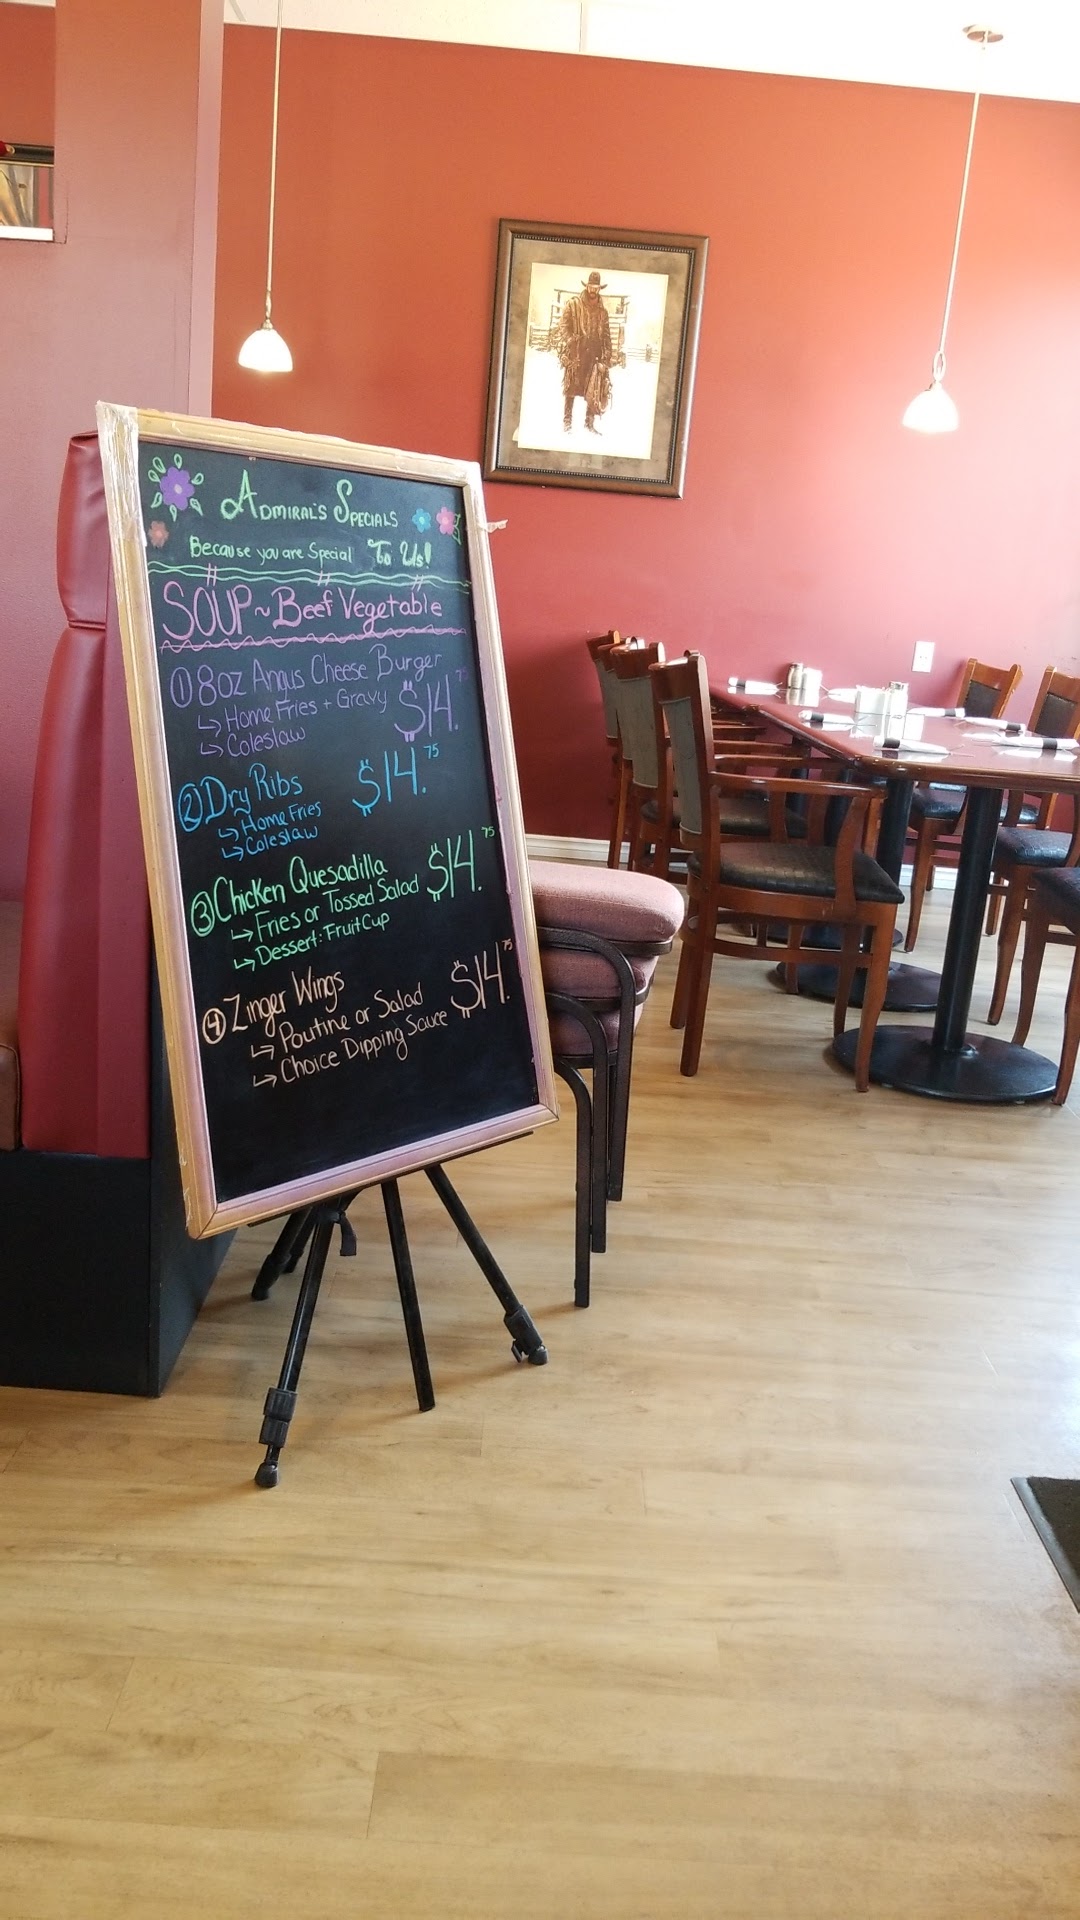 Admiral's Specials
Because you are Special To Us!
SOUP ~ Beef Vegetable
① 8oz Angus Cheese Burger
↳ Home Fries + Gravy $14.75
↳ Coleslaw
② Dry Ribs $14.75
↳ Home Fries
↳ Coleslaw
③ Chicken Quesadilla $14.75
↳ Fries or Tossed Salad
↳ Dessert: Fruit Cup
④ Zinger Wings $14.75
↳ Poutine or Salad
↳ Choice Dipping Sauce